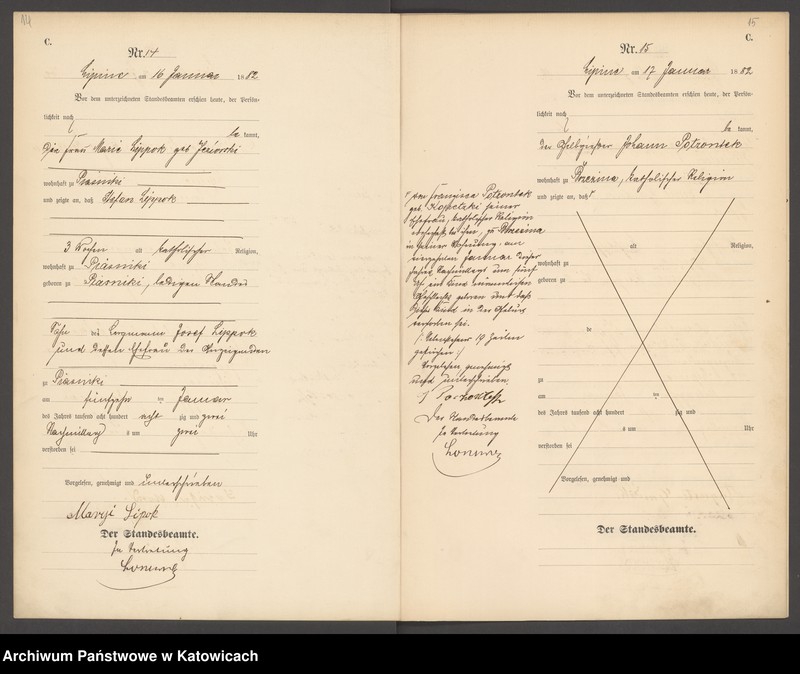 C.
Nr. 14
Lipine am 16 Januar 1882
Vor dem unterzeichneten Standesbeamten erschien heute, der Persön-
lichkeit nach
be kannt,
Frau Marie Lippok geb
wohnhaft zu Piasniki
und zeigte an, daß Stefan Lippok
3 Wochen alt katholischer Religion,
wohnhaft zu Piasniki
geboren zu Piasniki, ledigen Standes
Sohn des Bergmanns Josef Lippok
und dessen Ehefrau der Anzeigenden
zu Piasniki
am fünfzehn ten Januar
des Jahres tausend acht hundert acht zig und zwei
Nachmittags um zwei Uhr
verstorben sei
Vorgelesen, genehmigt und unterschrieben
Maryi Lipok
Der Standesbeamte.
In Vertretung
15
C.
Nr. 15
Lipine am 17 Januar 1882
Vor dem unterzeichneten Standesbeamten erschien heute, der Persön-
lichkeit nach
be kannt,
der Johann Potrontek
wohnhaft zu Brzezina, katholischer Religion
und zeigte an, daß
alt Religion,
wohnhaft zu
geboren zu
de
zu
am ten
des Jahres tausend acht hundert zig und
um Uhr
verstorben sei
Vorgelesen, genehmigt und
Der Standesbeamte.
Franzisca Potrontek
geb. seiner
Ehefrau, katholischer Religion
wohnhaft bei ihm, zu Brzezina
in seiner Wohnung am
Januar dieses
Jahres Nachmittags um fünf
Uhr ein Kind männlichen
Geschlechts geboren und daß
dieses Kind in der Geburt
verstorben sei.
19 Zeilen
gestrichen
Vorgelesen genehmigt
und unterschrieben
Der Standesbeamte
In Vertretung
Archiwum Państwowe w Katowicach